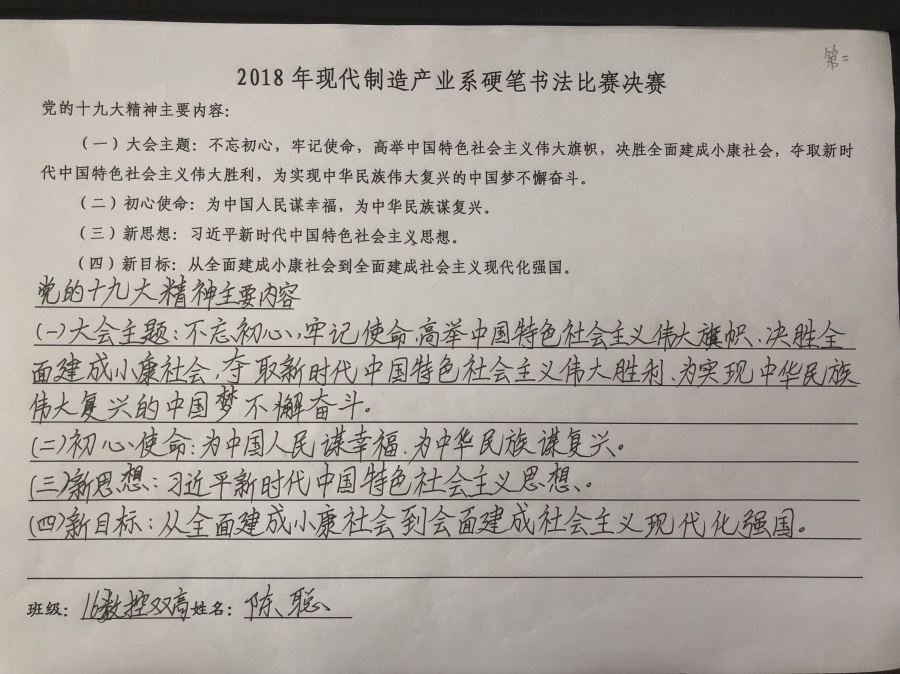 第二
2018 年现代制造产业系硬笔书法比赛决赛
党的十九大精神主要内容：
（一）大会主题：不忘初心，牢记使命，高举中国特色社会主义伟大旗帜，决胜全面建成小康社会，夺取新时
代中国特色社会主义伟大胜利，为实现中华民族伟大复兴的中国梦不懈奋斗。
（二）初心使命：为中国人民谋幸福，为中华民族谋复兴。
（三）新思想：习近平新时代中国特色社会主义思想。
（四）新目标：从全面建成小康社会到全面建成社会主义现代化强国。
党的十九大精神主要内容
(一)大会主题：不忘初心，牢记使命，高举中国特色社会主义伟大旗帜、决胜全
面建成小康社会，夺取新时代中国特色社会主义伟大胜利、为实现中华民族
伟大复兴的中国梦不懈奋斗。
(二)初心使命：为中国人民谋幸福、为中华民族谋复兴。
(三)新思想：习近平新时代中国特色社会主义思想。
(四)新目标：从全面建成小康社会到会面建成社会主义现代化强国。
班级：16数控双高姓名：陈聪